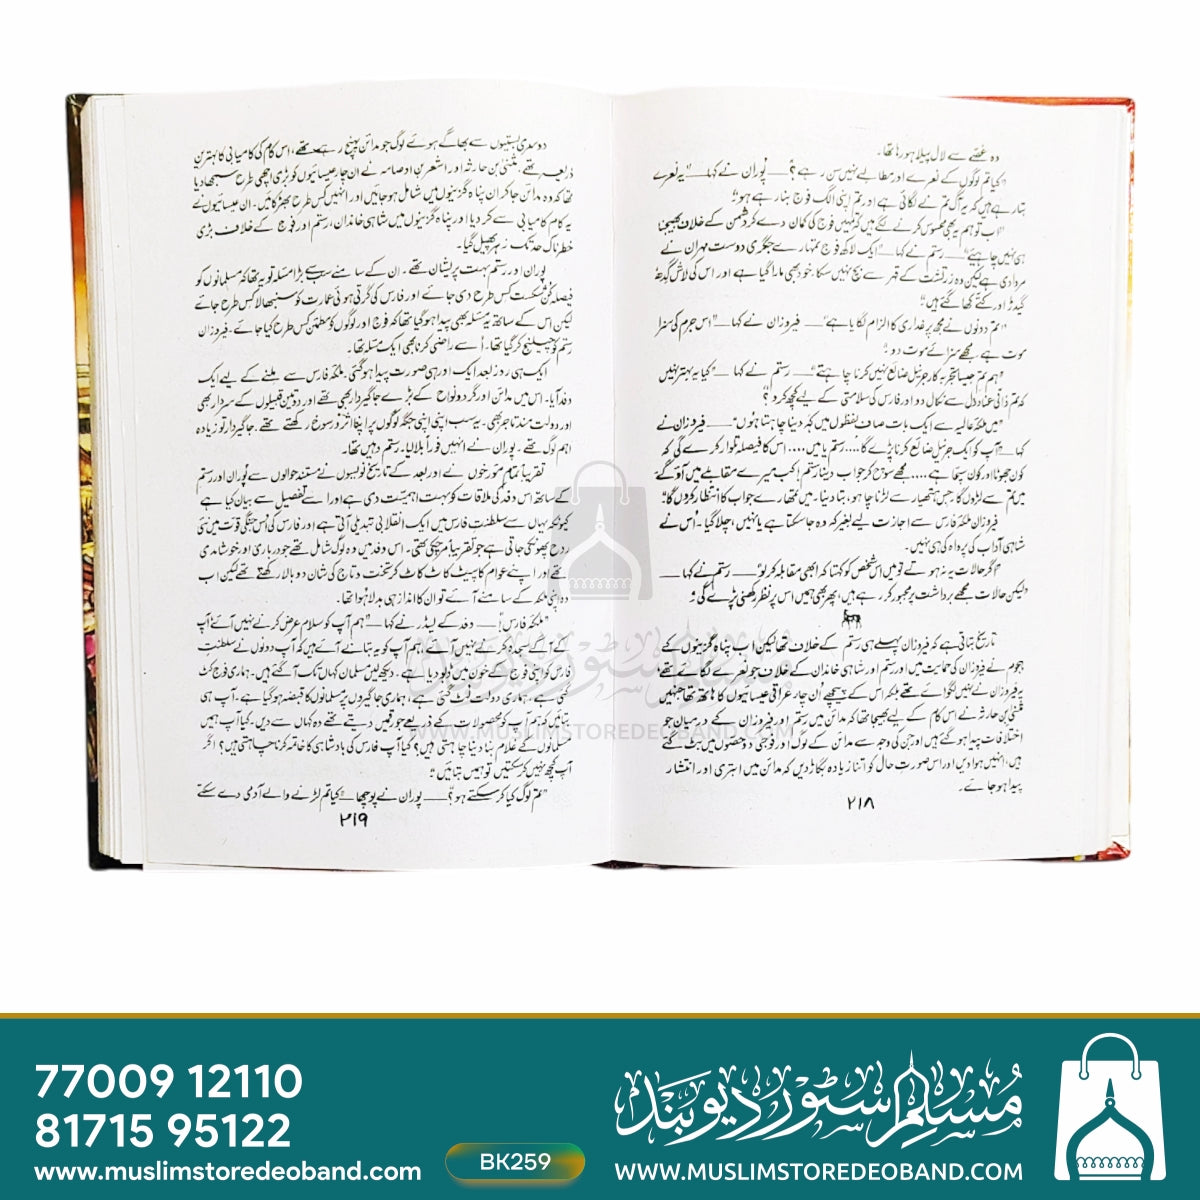 وہ غصّے سے لال پیلا ہو رہا تھا۔
"کیا تم لوگوں کے نعرے اور مطالبے نہیں سن رہے؟" —— پوران نے کہا —— "یہ نعرے
بتا رہے ہیں کہ یہ آگ تم نے لگائی ہے اور تم اپنی الگ فوج بنا رہے ہو"
"اب تو ہم یہ بھی محسوس کرنے لگے ہیں کہ تمہیں فوج کی کمان دے کر دشمن کے خلاف بھیجنا
ہی نہیں چاہیئے" —— رستم نے کہا —— "ایک لاکھ فوج تمہارے جگری دوست مہران نے
مروا دی ہے لیکن وہ زرتشت کے قہر سے بچ نہیں سکا، خود بھی مارا گیا ہے اور اس کی لاش گدھ،
گیدڑ اور کتّے کھا گئے ہیں"
"تم دونوں نے مجھ پر غداری کا الزام لگایا ہے" —— فیروزان نے کہا —— "اس جرم کی سزا
موت ہے۔ مجھے سزائے موت دو"
"ہم تم جیسا تجربہ کار جرنیل ضائع نہیں کرنا چاہتے" —— رستم نے کہا —— "کیا یہ بہتر نہیں
کہ تم ذاتی عناد دل سے نکال دو اور فارس کی سلامتی کے لیے کچھ کرو؟"
"میں ملکۂ عالیہ سے ایک بات صاف لفظوں میں کہہ دینا چاہتا ہوں" —— فیروزان نے
کہا —— "آپ کو ایک جرنیل ضائع کرنا پڑے گا.... رستم یا میں.... اس کا فیصلہ تلوار کرے گی کہ
کون جھوٹا اور کون سچا ہے.... مجھے سوچ کر جواب دینا رستم! جب میرے مقابلے میں آؤ گے
میں تم سے لڑوں گا۔ جس ہتھیار سے لڑنا چاہو، بتا دینا۔ میں تمہارے جواب کا انتظار کروں گا"
فیروزان ملکۂ فارس سے اجازت لیے بغیر کہ وہ جا سکتا ہے یا نہیں، چلا گیا۔ اُس نے
شاہی آداب کی پرواہ کی ہی نہیں۔
"اگر حالات یہ نہ ہوتے تو میں اس شخص کو کہتا کہ ابھی مقابلہ کر لو" —— رستم نے کہا ——
"لیکن حالات مجھے برداشت پر مجبور کر رہے ہیں، پھر بھی ہمیں اس پر نظر رکھنی پڑے گی"
تاریخ بتاتی ہے کہ فیروزان پہلے ہی رستم کے خلاف تھا لیکن اب پناہ گزینوں کے
ہجوم نے فیروزان کی حمایت میں اور رستم اور شاہی خاندان کے خلاف جو نعرے لگائے تھے
یہ فیروزان نے نہیں لگوائے تھے بلکہ اس کے پیچھے اُن چار عراقی عیسائیوں کا ہاتھ تھا جنہیں
مثنّیٰ بن حارثہ نے اس کام کے لیے بھیجا تھا کہ مدائن میں رستم اور فیروزان کے درمیان جو
اختلافات پیدا ہو گئے ہیں اور جن کی وجہ سے مدائن کے لوگ اور فوجی دو حصوں میں بٹ گئے
ہیں، انہیں ہوا دیں اور اس صورتِ حال کو اتنا زیادہ بگاڑ دیں کہ مدائن میں ابتری اور انتشار
پیدا ہو جائے۔
۲۱۸
دوسری بستیوں سے بھاگے ہوئے لوگ جو مدائن پہنچ رہے تھے، اس کام کی کامیابی کا بہترین
ذریعہ تھے۔ مثنّیٰ بن حارثہ اور اشعر بن اوصامہ نے ان چار عیسائیوں کو بڑی اچھی طرح سمجھا دیا
تھا کہ وہ مدائن جا کر ان پناہ گزینوں میں شامل ہو جائیں اور انہیں کس طرح بھڑکائیں۔ ان عیسائیوں نے
یہ کام کامیابی سے کر دیا اور پناہ گزینوں میں شاہی خاندان، رستم اور فوج کے خلاف بڑی
خطرناک حد تک زہر پھیل گیا۔
پوران اور رستم بہت پریشان تھے۔ ان کے سامنے سب سے بڑا مسئلہ تو یہ تھا کہ مسلمانوں کو
فیصلہ کُن شکست کس طرح دی جائے اور فارس کی گرتی ہوئی عمارت کو سنبھالا کس طرح جائے
لیکن اس کے ساتھ یہ مسئلہ بھی پیدا ہو گیا تھا کہ فوج اور لوگوں کو مطمئن کس طرح کیا جائے۔ فیروزان
رستم کو چیلنج کر گیا تھا۔ اُسے راضی کرنا بھی ایک مسئلہ تھا۔
ایک ہی روز بعد ایک اور ہی صورت پیدا ہو گئی۔ ملکۂ فارس سے ملنے کے لیے ایک
وفد آیا۔ اس میں مدائن اور گرد و نواح کے بڑے جاگیردار بھی تھے اور دو تین قبیلوں کے سردار بھی
اور دولت مند تاجر بھی۔ یہ سب اپنی اپنی جگہ لوگوں پر اپنا اثر و رسوخ رکھتے تھے۔ جاگیردار تو زیادہ
اہم لوگ تھے۔ پوران نے انہیں فوراً بلا لیا۔ رستم وہیں تھا۔
تقریباً تمام مورخوں نے اور بعد کے تاریخ نویسوں نے مستند حوالوں سے پُوران اور رستم
کے ساتھ اس وفد کی ملاقات کو بہت اہمیت دی ہے اور اسے تفصیل سے بیان کیا ہے
کیونکہ یہاں سے سلطنتِ فارس میں ایک انقلابی تبدیلی آتی ہے اور فارس کی اُس جنگی قوت میں نئی
روح پھونکی جاتی ہے جو تقریباً مر چکی تھی۔ اس وفد میں وہ لوگ شامل تھے جو درباری اور خوشامدی
تھے اور اپنے عوام کا پیٹ کاٹ کاٹ کر تخت و تاج کی شان دوبالا رکھتے تھے لیکن اب
وہ اپنی ملکہ کے سامنے آئے تو ان کا انداز ہی بدلا ہوا تھا۔
"ملکۂ فارس!" —— وفد کے لیڈر نے کہا —— "ہم آپ کو سلام عرض کرنے نہیں آئے آپ
کے آگے سجدہ کرنے نہیں آئے۔ ہم آپ کو یہ بتانے آئے ہیں کہ آپ دونوں نے سلطنتِ
فارس کو اپنی فوج کے خون میں ڈبو دیا ہے۔ دیکھ لیں مسلمان کہاں تک آ گئے ہیں۔ ہماری فوج کٹ
گئی ہے، ہماری دولت لُٹ گئی ہے، ہماری جاگیروں پر مسلمانوں کا قبضہ ہو گیا ہے۔ آپ ہی
بتائیں کہ ہم آپ کو محصولات کے ذریعے جو رقمیں دیتے تھے وہ کہاں سے دیں۔ کیا آپ ہمیں
مسلمانوں کے غلام بنا دینا چاہتی ہیں؟ کیا آپ فارس کی بادشاہی کا خاتمہ کرنا چاہتی ہیں؟ اگر
آپ کچھ نہیں کر سکتیں تو ہمیں بتائیں"
"تم لوگ کیا کر سکتے ہو؟" —— پوران نے پوچھا —— "کیا تم لڑنے والے آدمی دے سکتے
۲۱۹
مسلم سٹور دیوبند
WWW.MUSLIMSTOREDEOBAND.COM
77009 12110
81715 95122
www.muslimstoredeoband.com
BK259
مسلم سٹور دیوبند
WWW.MUSLIMSTOREDEOBAND.COM